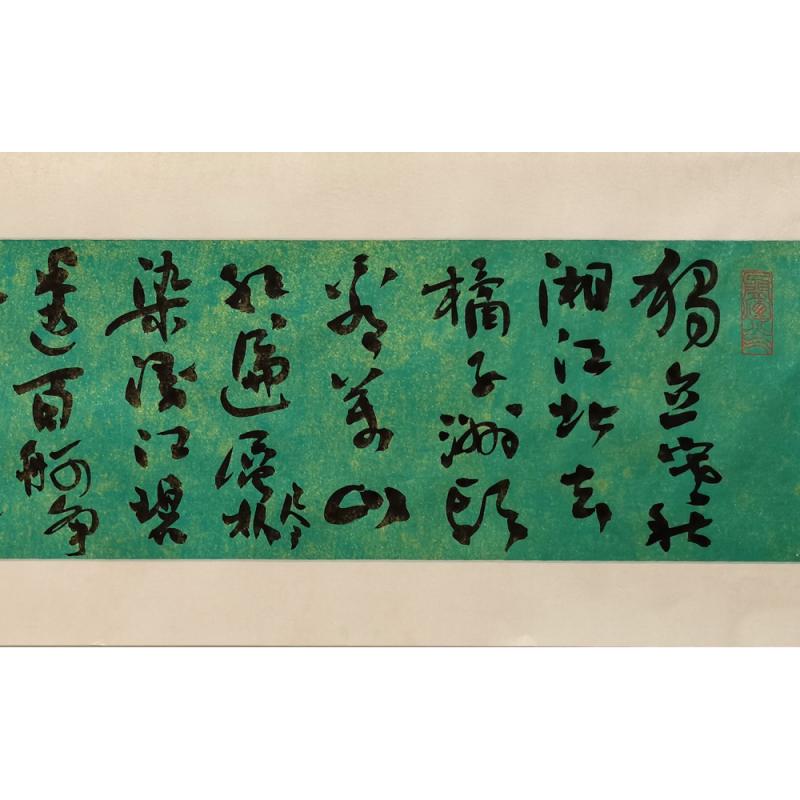 獨立寒秋
湘江北去
橘子洲頭
看萬山
紅遍層林尽
染漫江碧
透百舸争